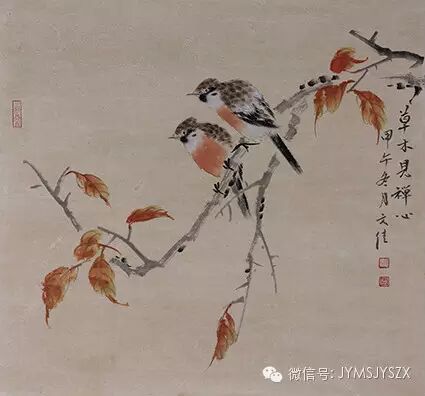 草木見禅心
甲午冬月文佳
微信号: JYMSJYSZX